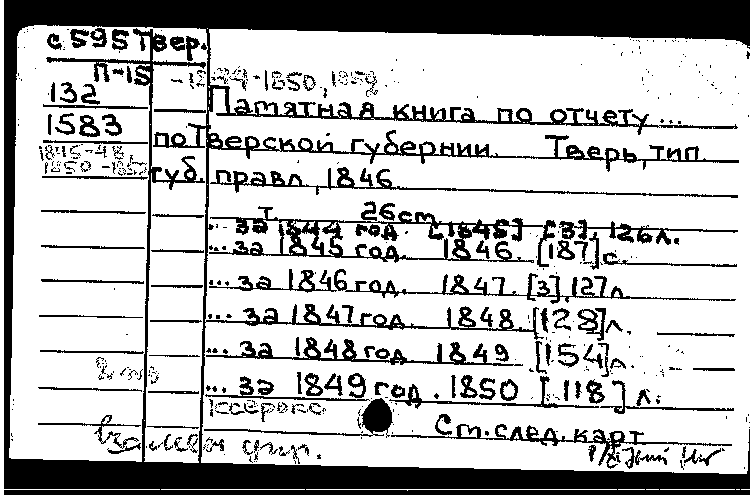 с 595 Твер.
П-15 -1844-1850, 1852
132
Памятная книга по отчету ...
1583
по Тверской губернии. Тверь, тип.
1845-48,
1850-1852
губ. правл., 1846.
т. 26 cm.
... за 1844 год. [1845] [3], 126 л.
... за 1845 год. 1846. [187] с.
... за 1846 год. 1847. [3], 127 л.
... за 1847 год. 1848. [128] л.
... за 1848 год 1849. [154] л.
... за 1849 год. 1850 [118] л.
См. след. карт
взамен